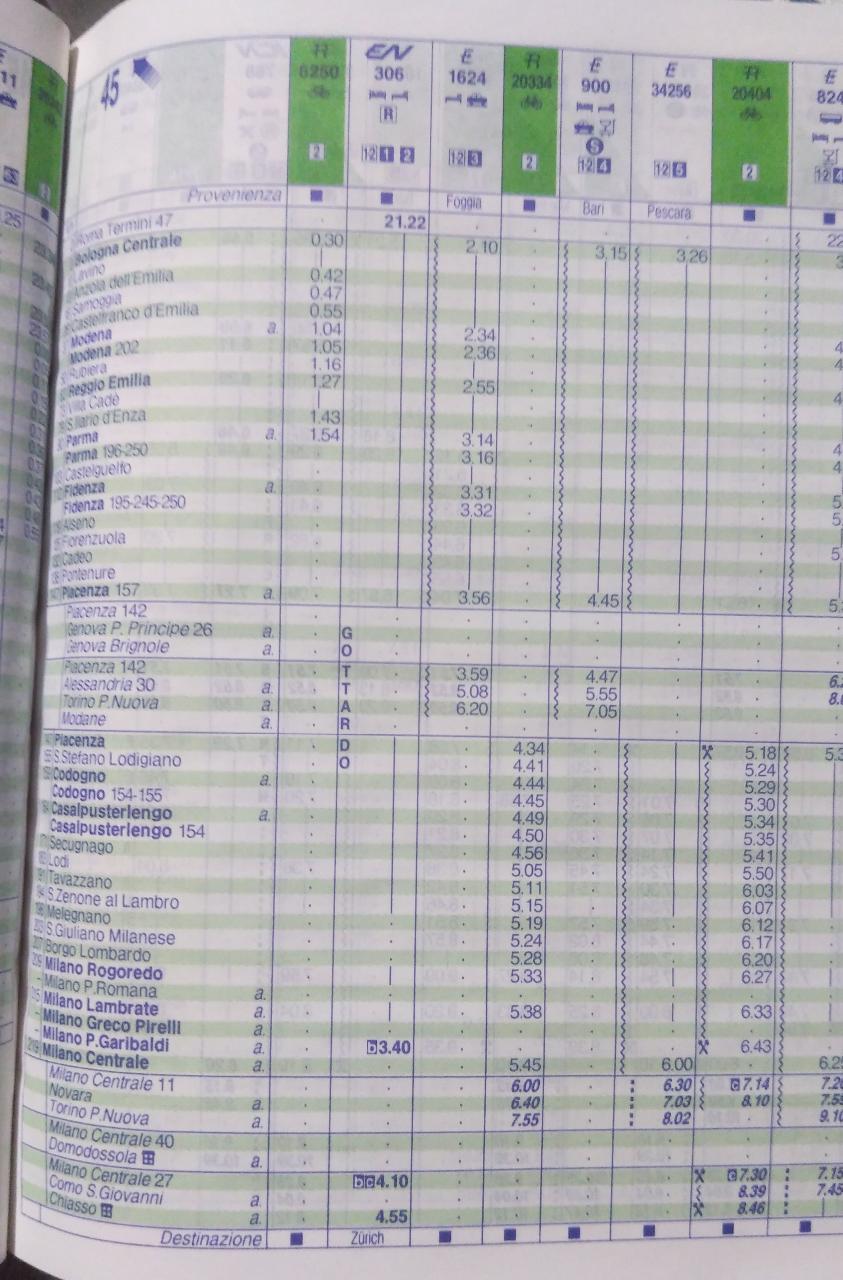 45
R EN E R E E R E
11 6250 306 1624 20334 900 34256 20404 824
R
2 12 1 2 12 3 2 S 12 4 12 5 2 12 4
Provenienza Foggia Bari Pescara
Roma Termini 47 21.22 22
Bologna Centrale 0.30 2.10 3.15 3.26
Lavino
Anzola dell'Emilia 0.42
Samoggia 0.47
Castelfranco d'Emilia 0.55
Modena a. 1.04 2.34
Modena 202 1.05 2.36
Rubiera 1.16
Reggio Emilia 1.27 2.55
Villa Cadè
S.Ilario d'Enza 1.43
Parma a. 1.54 3.14
Parma 196-250 3.16
Castelguelfo
Fidenza a. 3.31
Fidenza 195-245-250 3.32
Alseno
Fiorenzuola
Cadeo
Pontenure
Piacenza 157 a. 3.56 4.45
Piacenza 142
Genova P. Principe 26 a. G
Genova Brignole a. O
Piacenza 142 T 3.59 4.47
Alessandria 30 a. T 5.08 5.55
Torino P.Nuova a. A 6.20 7.05
Modane a. R
Piacenza D 4.34 5.18
S.Stefano Lodigiano O 4.41 5.24
Codogno a. 4.44 5.29
Codogno 154-155 4.45 5.30
Casalpusterlengo a. 4.49 5.34
Casalpusterlengo 154 4.50 5.35
Secugnago 4.56 5.41
Lodi 5.05 5.50
Tavazzano 5.11 6.03
S.Zenone al Lambro 5.15 6.07
Melegnano 5.19 6.12
S.Giuliano Milanese 5.24 6.17
Borgo Lombardo 5.28 6.20
209 Milano Rogoredo 5.33 6.27
Milano P.Romana a.
Milano Lambrate a. 5.38 6.33
Milano Greco Pirelli a.
Milano P.Garibaldi a. b 3.40 6.43
219 Milano Centrale a. 5.45 6.00 6.25
Milano Centrale 11 6.00 6.30 c 7.14 7.20
Novara a. 6.40 7.03 8.10 7.55
Torino P.Nuova a. 7.55 8.02 9.10
Milano Centrale 40
Domodossola a.
Milano Centrale 27 b c 4.10 c 7.30 7.15
Como S.Giovanni a. 8.39 7.45
Chiasso a. 4.55 8.46
Destinazione Zürich